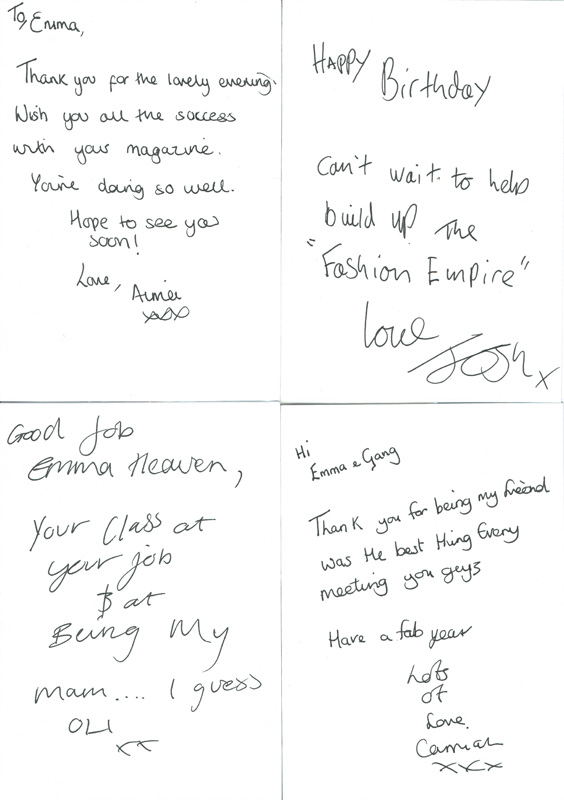 To Emma,
Thank you for the lovely evening.
Wish you all the success
with your magazine.
You're doing so well.
Hope to see you
soon!
Love,
Aimée
xxx
HAPPY Birthday
Can't wait to help
build up the
"Fashion Empire"
love
Josh x
Good Job
Emma Heaven,
Your Class at
your job
& at
Being My
mam.... I guess
OLI
xx
Hi
Emma & Gang
Thank you for being my friend
was the best thing Every
meeting you guys
Have a fab year
Lots
of
Love.
xxx